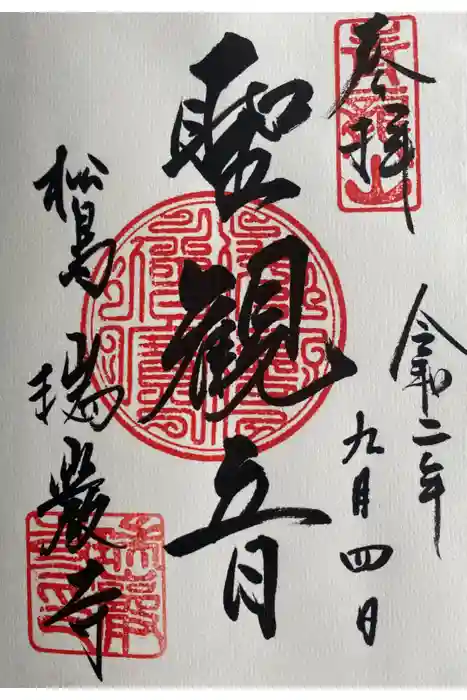 奉拝
令和二年
九月四日
聖観音
松島瑞巌寺